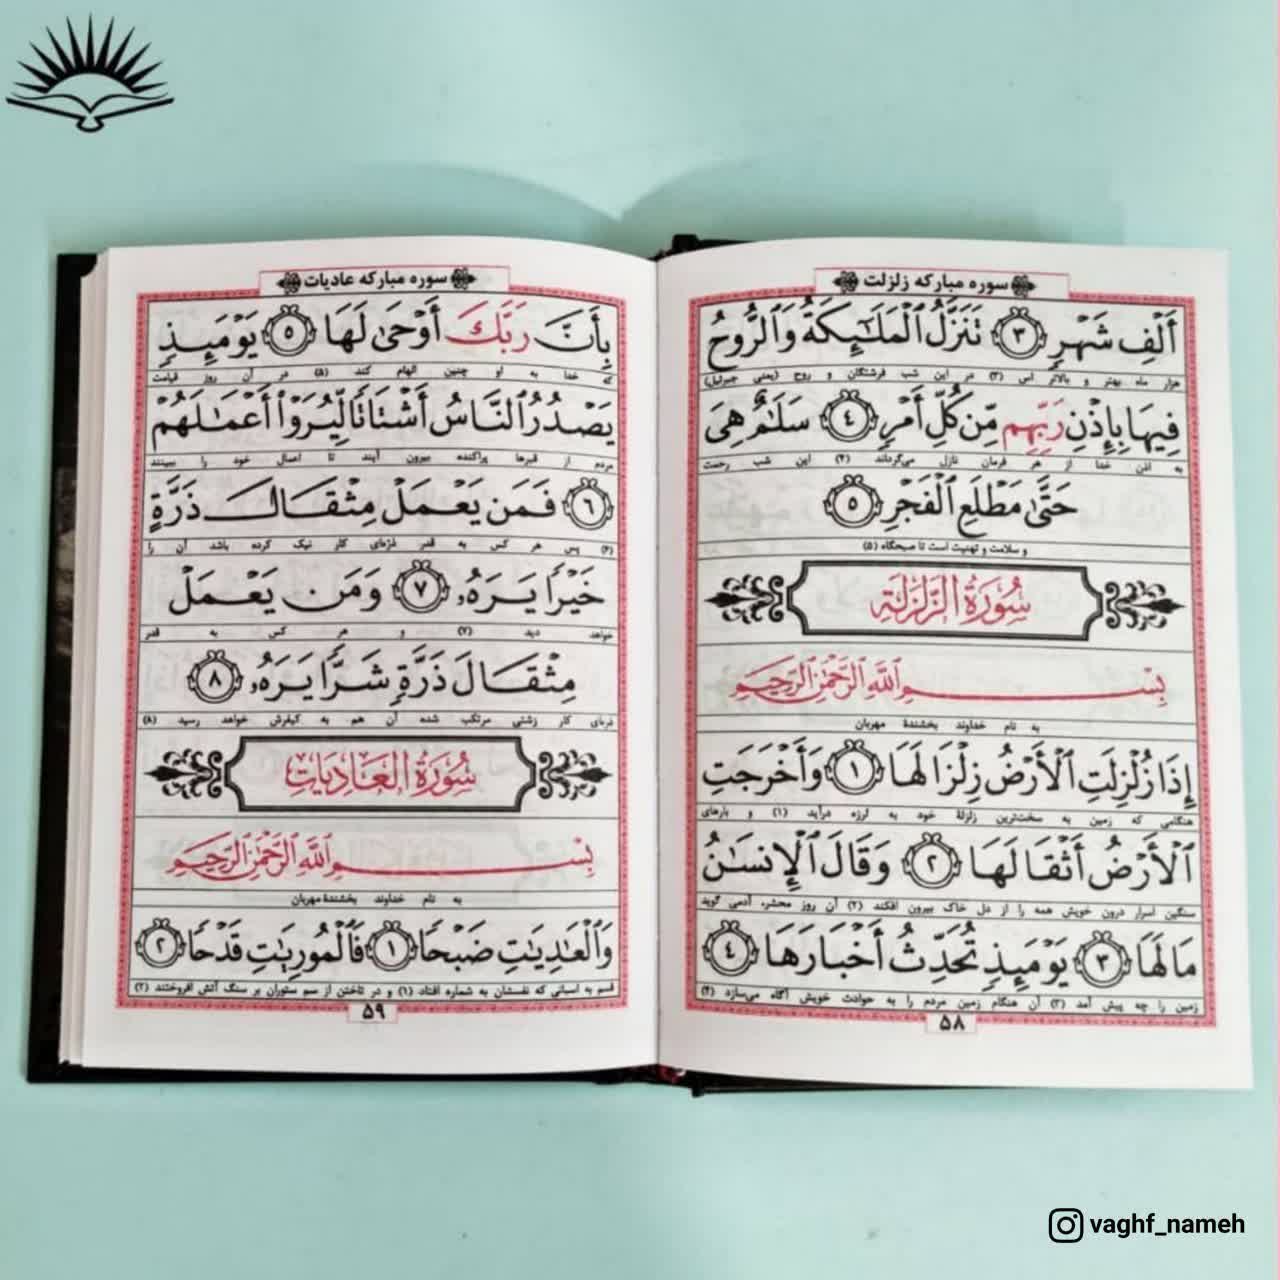 سوره مبارکه زلزلت
أَلْفِ شَهْرٍ ۳ تَنَزَّلُ ٱلْمَلَـٰٓئِكَةُ وَٱلرُّوحُ
هزار ماه بهتر و بالاتر اس (۳) در این شب فرشتگان و روح (یعنی جبرئیل)
فِيهَا بِإِذْنِ رَبِّهِم مِّن كُلِّ أَمْرٍ ۴ سَلَـٰمٌ هِىَ
به اذن خدا از هر فرمان نازل می‌گردانند (۴) این شب رحمت
حَتَّىٰ مَطْلَعِ ٱلْفَجْرِ ۵
و سلامت و تهنیت است تا صبحگاه (۵)
سُورَةُ الزَّلْزَلَةِ
بِسْمِ ٱللَّهِ ٱلرَّحْمَـٰنِ ٱلرَّحِيمِ
به نام خداوند بخشندهٔ مهربان
إِذَا زُلْزِلَتِ ٱلْأَرْضُ زِلْزَالَهَا ۱ وَأَخْرَجَتِ
هنگامی که زمین به سخت‌ترین زلزلهٔ خود به لرزه درآید (۱) و بارهای
ٱلْأَرْضُ أَثْقَالَهَا ۲ وَقَالَ ٱلْإِنسَـٰنُ
سنگین اسرار درون خویش همه را از دل خاک بیرون افکند (۲) آن روز محشر، آدمی گوید
مَا لَهَا ۳ يَوْمَئِذٍ تُحَدِّثُ أَخْبَارَهَا ۴
زمین را چه پیش آمد (۳) آن هنگام زمین مردم را به حوادث خویش آگاه می‌سازد (۴)
۵۸
سوره مبارکه عادیات
بِأَنَّ رَبَّكَ أَوْحَىٰ لَهَا ۵ يَوْمَئِذٍ
که خدا به او چنین الهام کند (۵) در آن روز قیامت
يَصْدُرُ ٱلنَّاسُ أَشْتَاتًا لِّيُرَوْا۟ أَعْمَـٰلَهُمْ
مردم از قبرها پراکنده بیرون آیند تا اعمال خود را ببینند
۶ فَمَن يَعْمَلْ مِثْقَالَ ذَرَّةٍ
(۶) پس هر کس به قدر ذره‌ای کار نیک کرده باشد آن را
خَيْرًا يَرَهُۥ ۷ وَمَن يَعْمَلْ
خواهد دید (۷) و هر کس به قدر
مِثْقَالَ ذَرَّةٍ شَرًّا يَرَهُۥ ۸
ذره‌ای کار زشتی مرتکب شده آن هم به کیفرش خواهد رسید (۸)
سُورَةُ العَادِيَات
بِسْمِ ٱللَّهِ ٱلرَّحْمَـٰنِ ٱلرَّحِيمِ
به نام خداوند بخشندهٔ مهربان
وَٱلْعَـٰدِيَـٰتِ ضَبْحًا ۱ فَٱلْمُورِيَـٰتِ قَدْحًا ۲
قسم به اسبانی که نفسشان به شماره افتاد (۱) و در تاختن از سم ستوران بر سنگ آتش افروختند (۲)
۵۹
vaghf_nameh